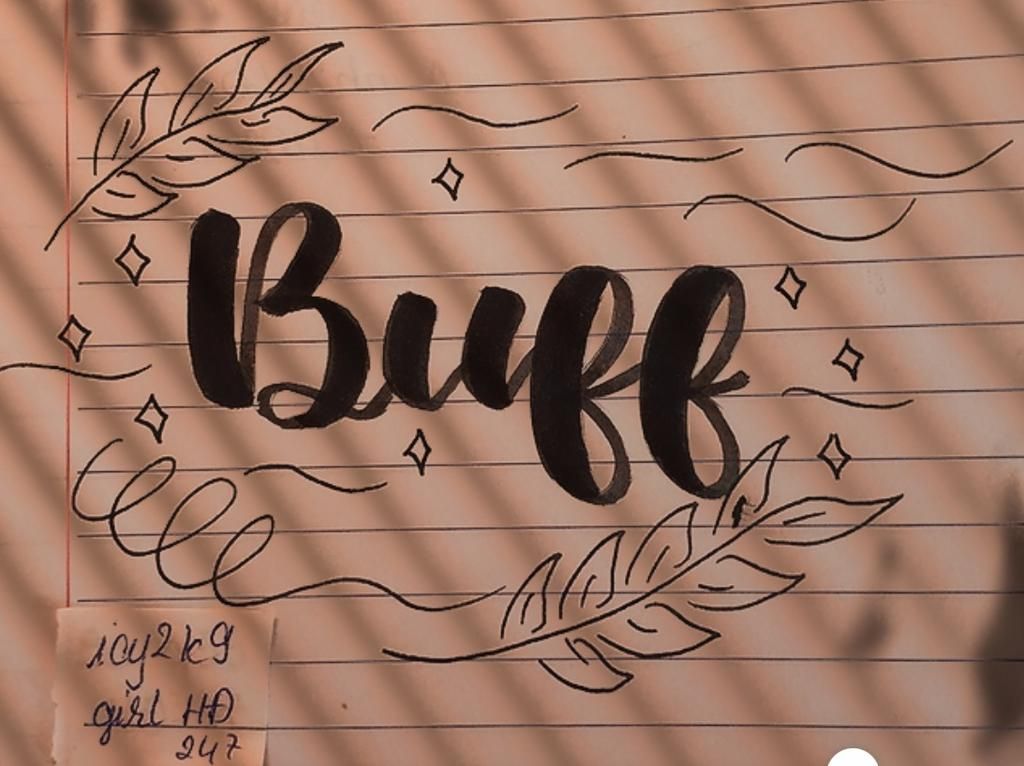 Buff
icy2k9
girl HĐ
247